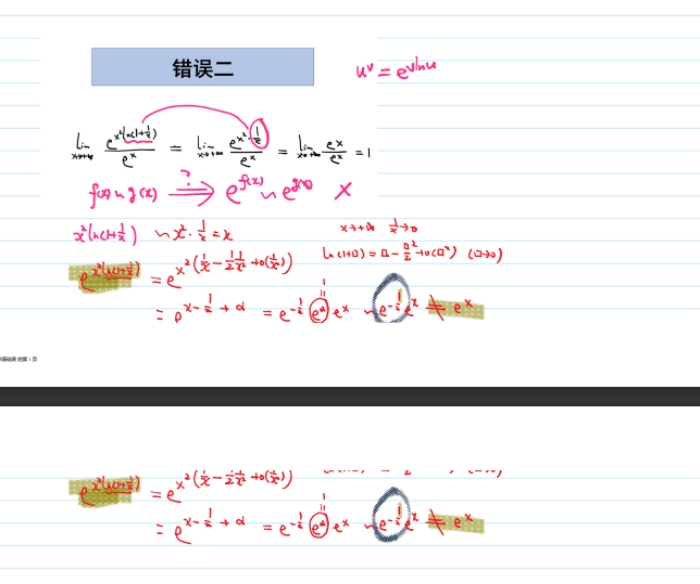 错误二
u^v = e^{v ln u}
lim_{x→+∞} e^{x² ln(1+1/x)} / e^x = lim_{x→+∞} e^{x²·1/x} / e^x = lim_{x→+∞} e^x / e^x = 1
f(x) ~ g(x) ⇒? e^{f(x)} ~ e^{g(x)} ×
x² ln(1+1/x) ~ x²·1/x = x
x→+∞ 1/x→0
ln(1+□) = □ - □²/2 + o(□²) (□→0)
e^{x² ln(1+1/x)} = e^{x²(1/x - 1/2 1/x² + o(1/x²))}
= e^{x - 1/2 + α} = e^{-1/2} e^α e^x ~ e^{-1/2} e^x ≠ e^x
1
e^{x² ln(1+1/x)} = e^{x²(1/x - 1/2 1/x² + o(1/x²))}
= e^{x - 1/2 + α} = e^{-1/2} e^α e^x ~ e^{-1/2} e^x ≠ e^x
1